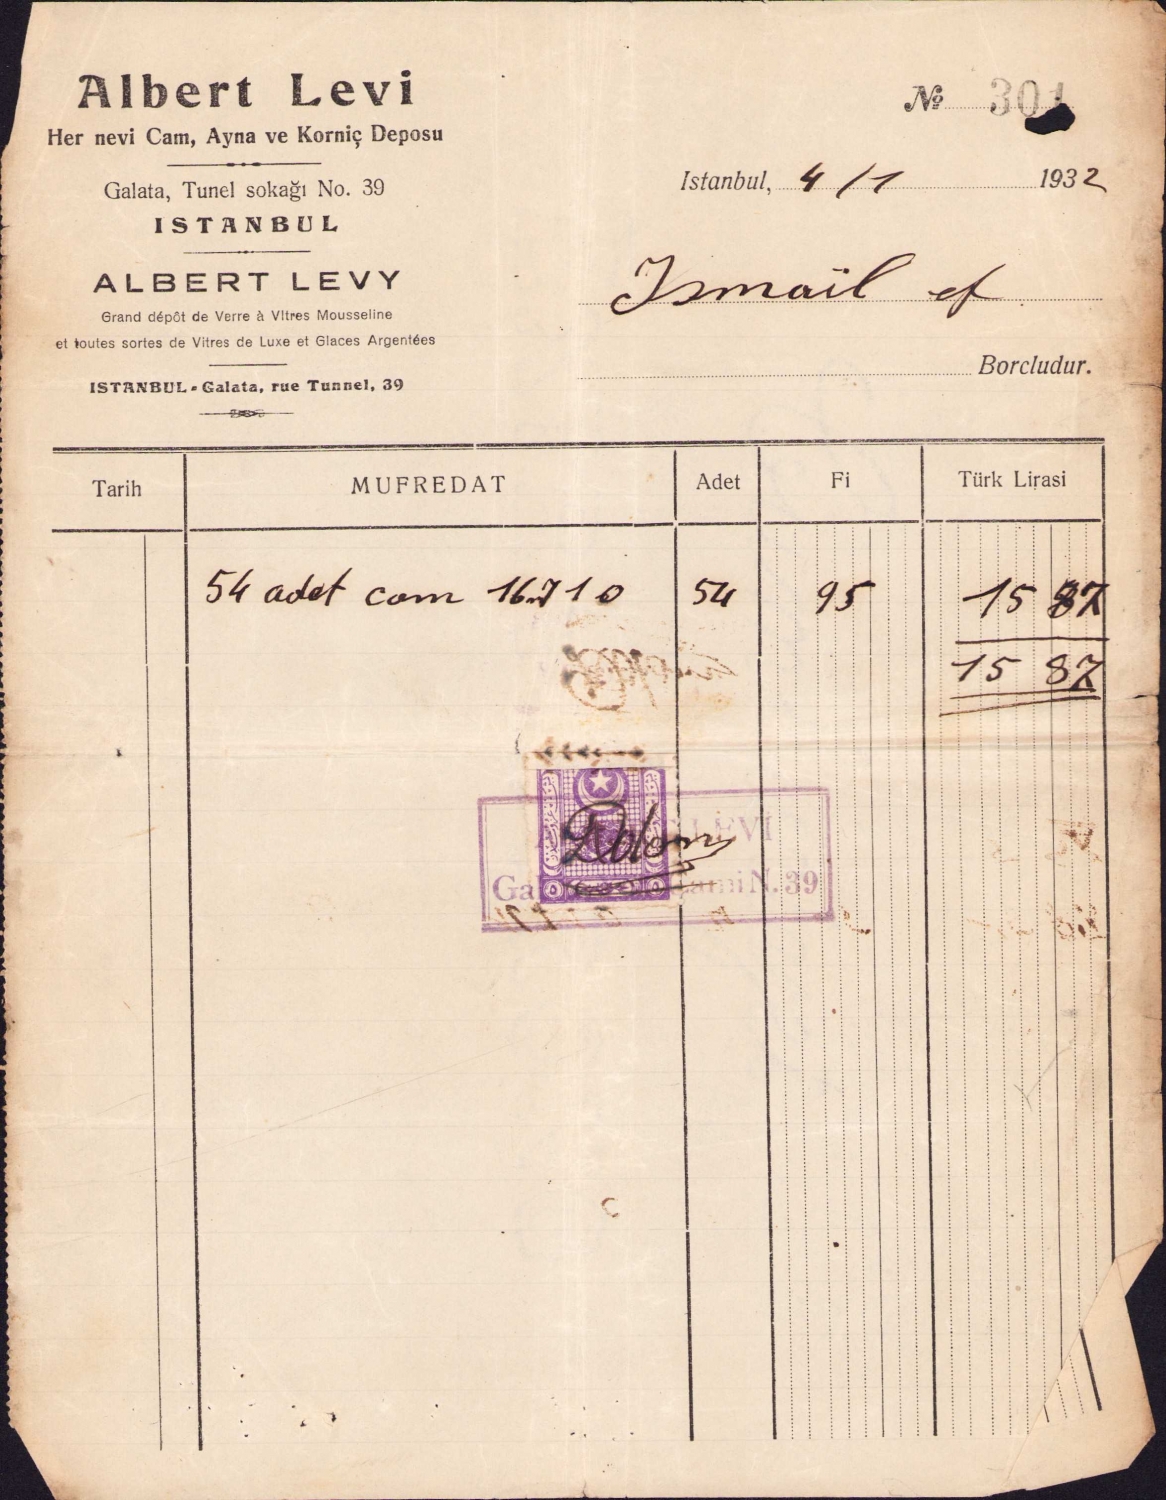 Albert Levi
Her nevi Cam, Ayna ve Korniç Deposu
Galata, Tunel sokağı No. 39
ISTANBUL
ALBERT LEVY
Grand dépôt de Verre à Vitres Mousseline
et toutes sortes de Vitres de Luxe et Glaces Argentées
ISTANBUL - Galata, rue Tunnel, 39
№ 301
Istanbul, 4/1 1932
Ismaïl ef
Borcludur.
Tarih MUFREDAT Adet Fi Türk Lirasi
54 adet cam 54 95 15 87
15 87
LEVI
Gal ami N. 39